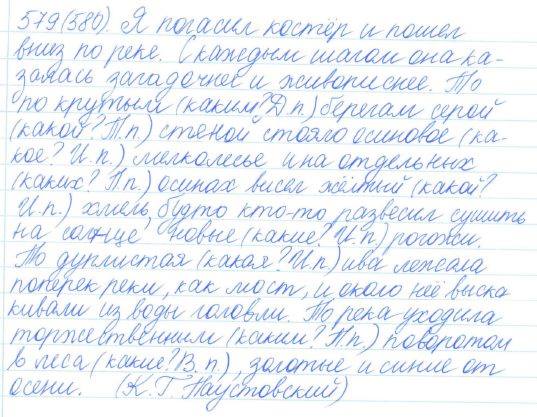 579(580). Я погасил костёр и пошел
вниз по реке. С каждым шагом она ка-
залась загадочнее и живописнее. То
по крутым (каким? Д.п.) берегам серой
(какой? Т.п.) стеной стояло осиновое (ка-
кое? И.п.) мелколесье и на отдельных
(каких? П.п.) осинах висел жёлтый (какой?
И.п.) хмель, будто кто-то развесил сушить
на солнце новые (какие? И.п.) рогожи.
То дуплистая (какая? И.п) ива лежала
поперек реки, как мост, и около неё выска
кивали из воды головли. То река уходила
торжественным (каким? П.п.) поворотом
в леса (какие? В.п.), золотые и синие от
осени. (К.Г. Паустовский)